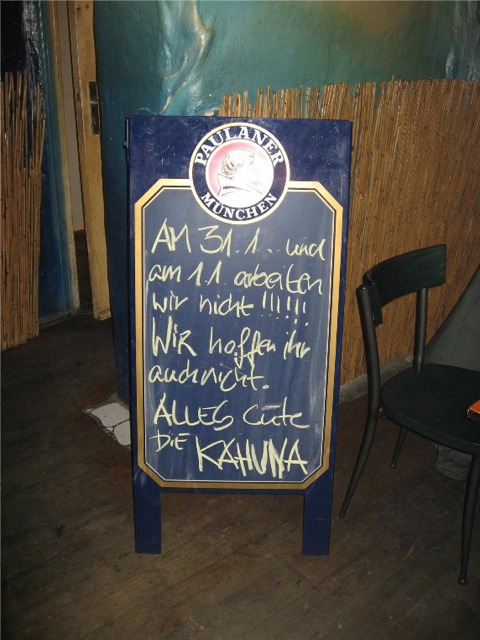 PAULANER
MÜNCHEN
AM 31.1. und
am 1.1. arbeiten
wir nicht !!!!!!
WiR hoffen ihr
auch nicht.
ALLES GUTE
DiE KAHUNA